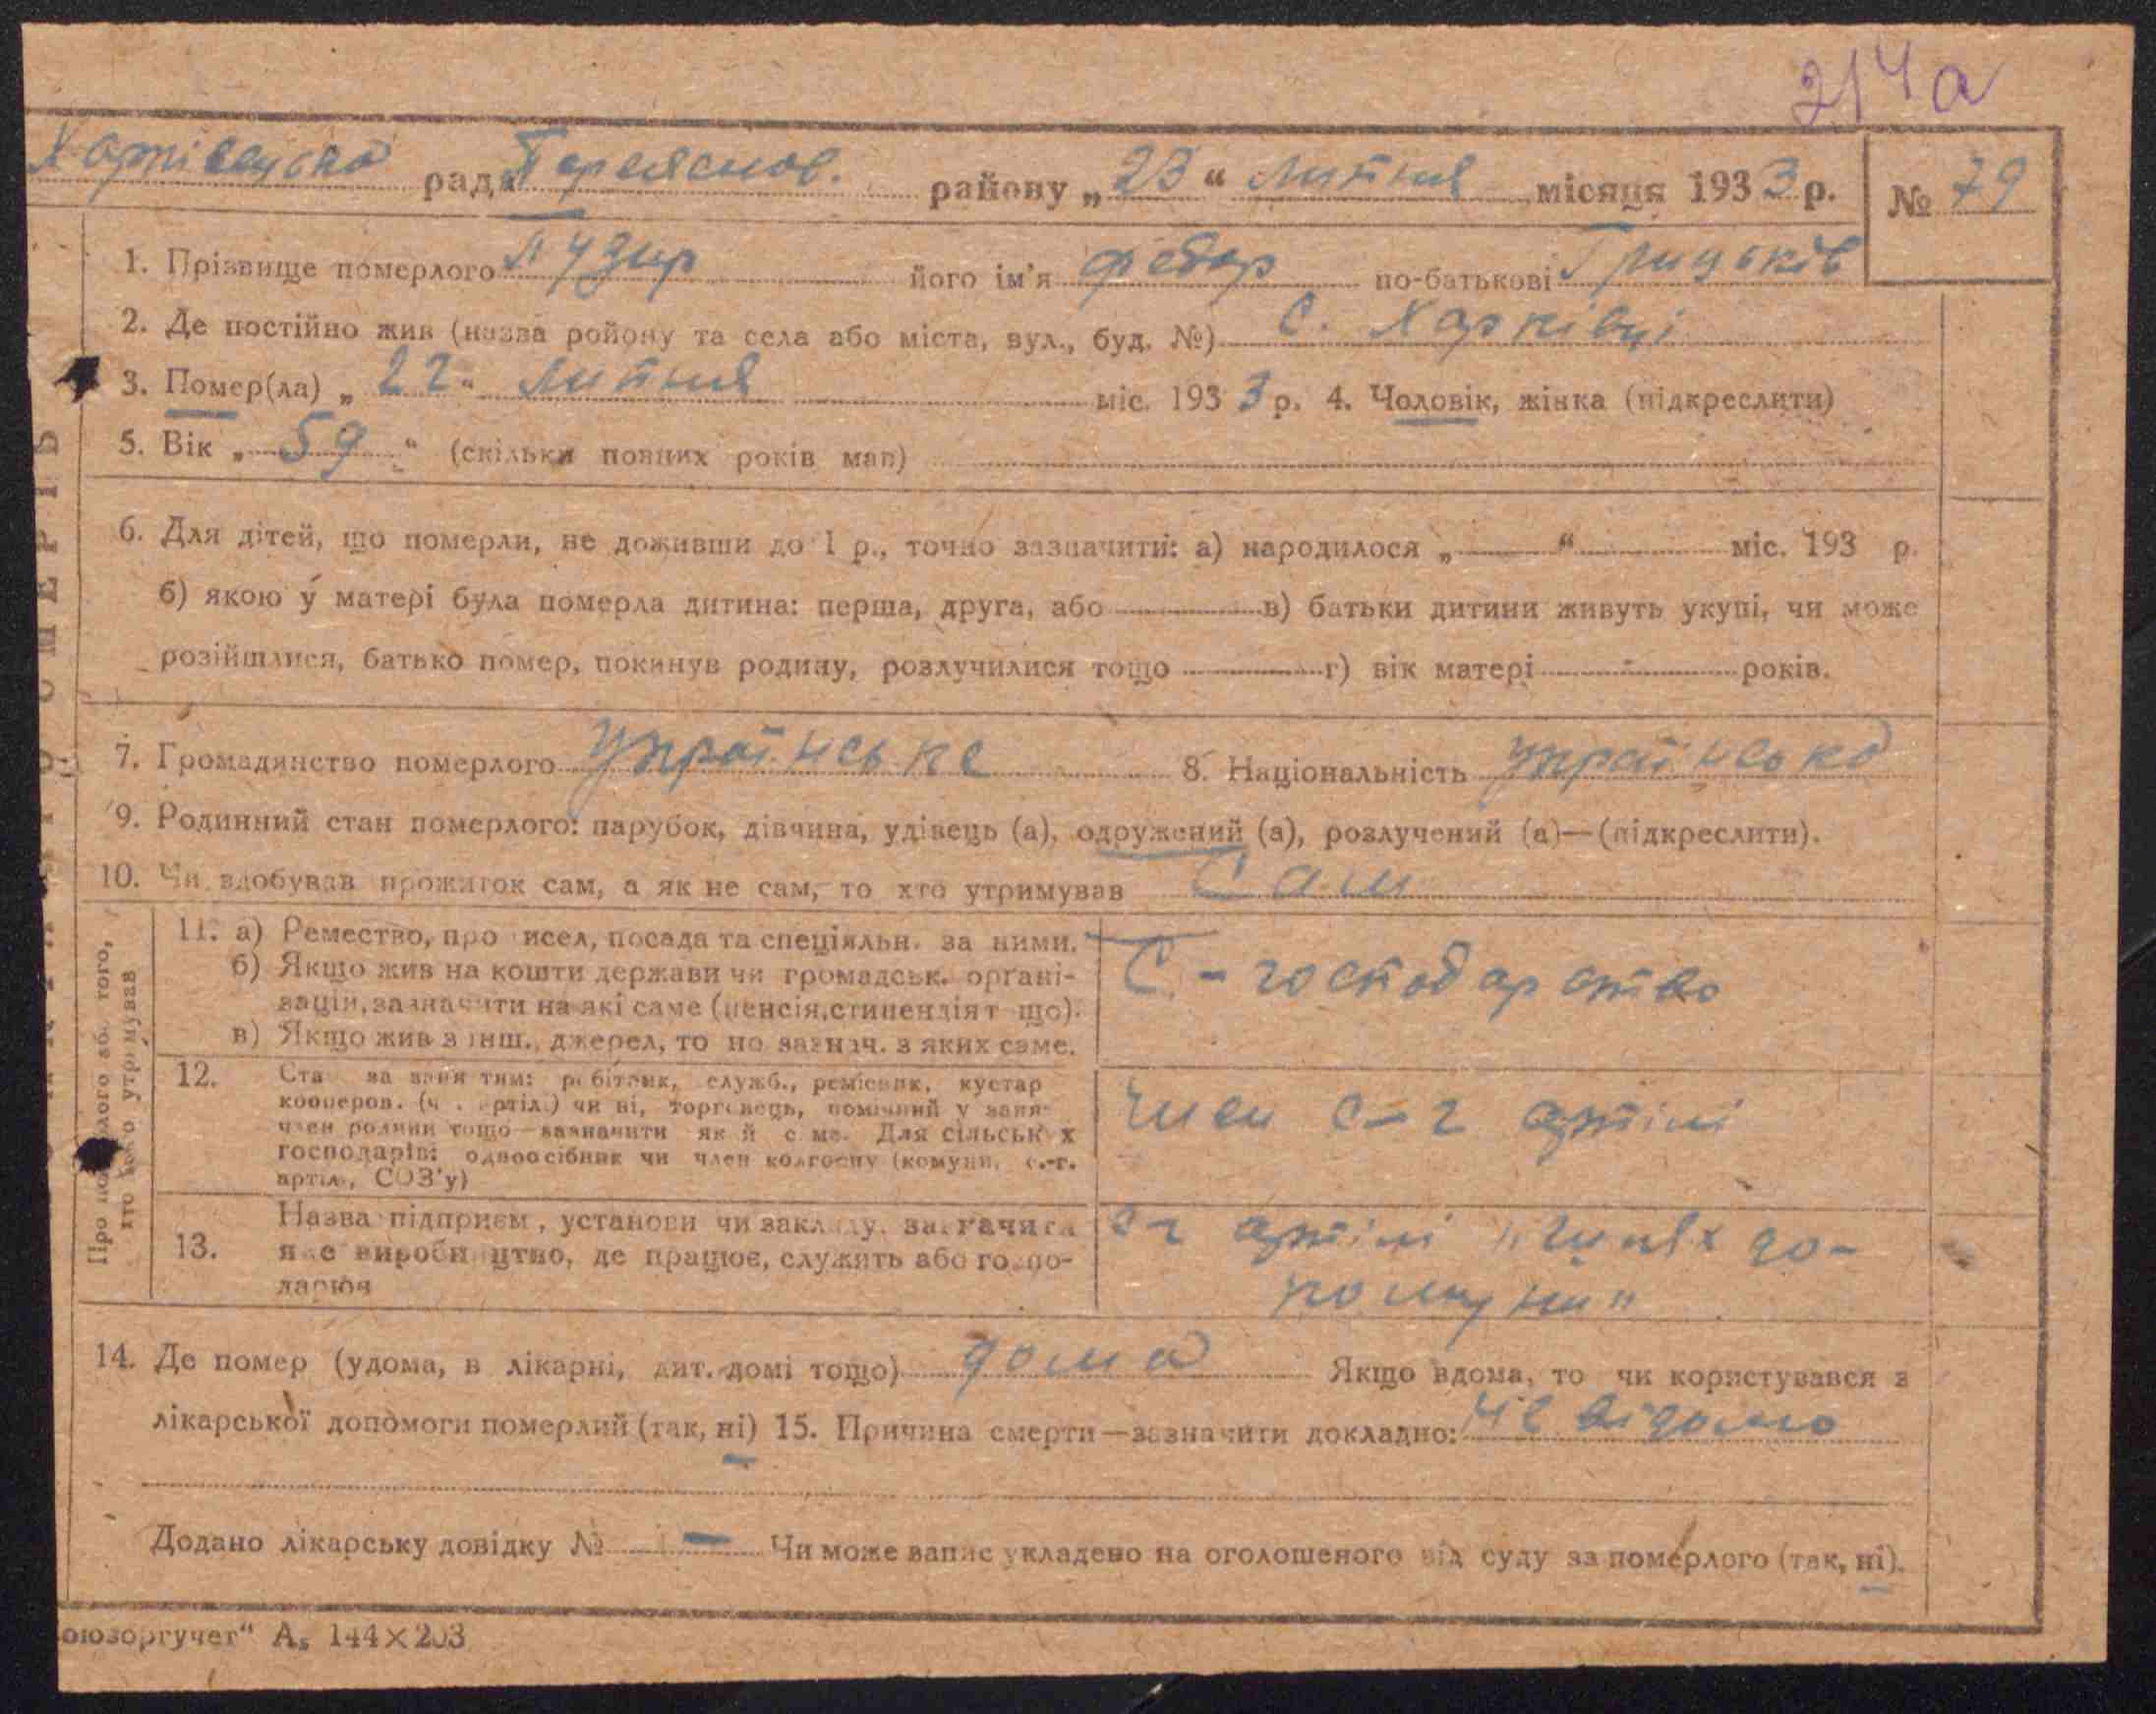 214а
Харківецька рада Переяслов. району „23“ Лютня місяця 1933 р. № 79
1. Прізвище померлого Пузир його ім'я Федор по-батькові Грицьків
2. Де постійно жив (назва ройону та села або міста, вул., буд. №) С. Харківці
3. Помер(ла) „22“ Лютня міс. 1933 р. 4. Чоловік, жінка (підкреслити)
5. Вік „59“ (скільки повних років мав)
6. Для дітей, що померли, не доживши до 1 р., точно зазначити: а) народилося „ “ міс. 193 р.
б) якою у матері була померла дитина: перша, друга, або в) батьки дитини живуть укупі, чи може
розійшлися, батько помер, покинув родину, розлучилися тощо г) вік матері - років.
7. Громадянство померлого Українське 8. Національність Українська
9. Родинний стан померлого: парубок, дівчина, удівець (а), одружений (а), розлучений (а)—(підкреслити).
10. Чи здобував прожиток сам, а як не сам, то хто утримував Сам
11. а) Ремество, про исел, посада та спеціяльн. за ними.
б) Якщо жив на кошти держави чи громадськ. органі-
зацій, зазначити на які саме (пенсія, стипендіят що).
в) Якщо жив з інш. джерел, то по зазнач. з яких саме.
С - господарство
12. Ста за заня тям: робітник, служб., ремісник, кустар
кооперов. (ч . артілі) чи ні, торговець, помічний у заня-
член родини тощо—зазначити як й с ме. Для сільськ х
господарів: одноосібник чи член колгоспу (комуни, с.-г.
артілі, СОЗ'у)
член с-г артілі
13. Назва підприєм, установи чи закладу, зазначити
яке вироби цтво, де працює, служить або госпо-
дарює
с-г артілі „Шлях до-
комуни"
14. Де помер (удома, в лікарні, дит. домі тощо) дома Якщо вдома, то чи користувався з
лікарської допомоги померлий (так, ні) 15. Причина смерти—зазначити докладно: Не відомо
Додано лікарську довідку № - Чи може запис укладено на оголошеного від суду за померлого (так, ні).
оюзоргучет" А₅ 144×203